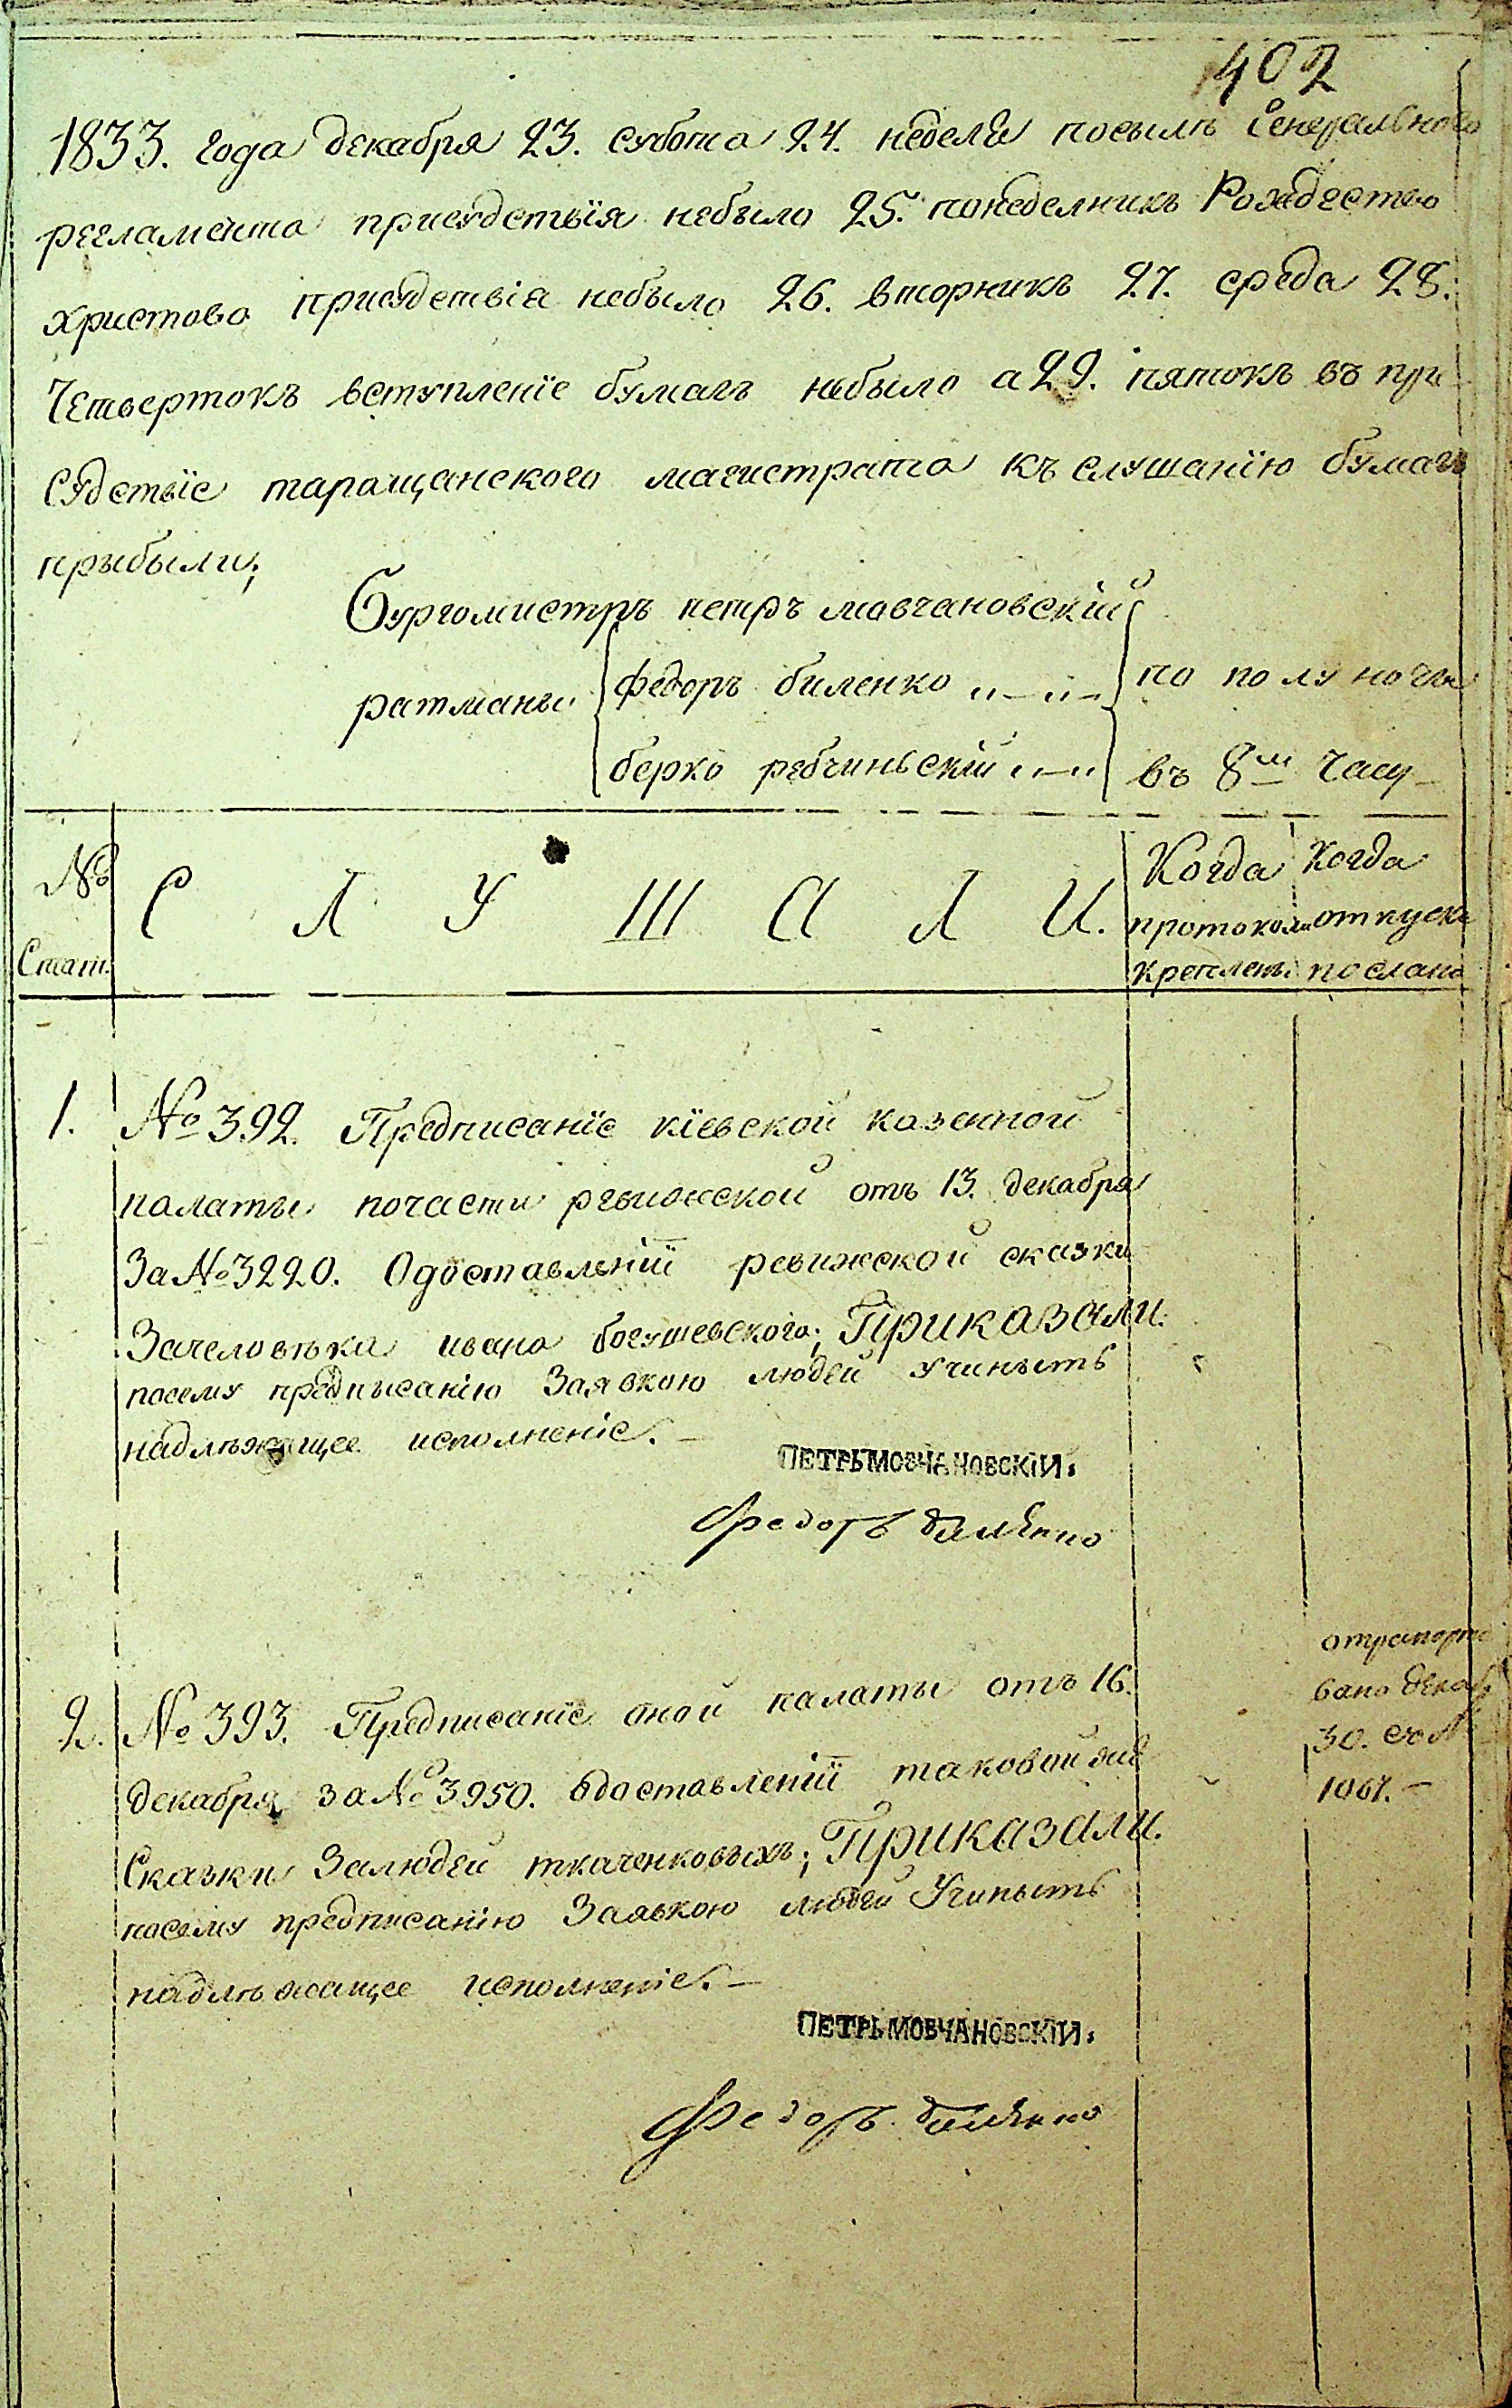 402
1833. года декабря 23. субота 24. неделя посылѣ Генерального
регламента присудствїя небыло 25. понеделникъ Рождество
христово присудствїя небыло 26. вторникъ 27. среда 28.
Четвертокъ вступленїе бумагъ небыло а 29. пятокъ въ при
Судствїе таращанского магистрата къ слушанїю бумагъ
прыбыли;
Бургомистръ петръ мовчановскїй
ратманы федоръ биленко „—„— по полу ночы
берко ребчиньскїй „—„ въ 8м часу —
№ Стат. С Л У Ш А Л И. Когда протоколъ Крепленъ Когда отпускъ посланъ
1. № 392. Предписанїе кїевской казенной
палаты почасти ревижской отъ 13. декабря
За № 3220. Одоставленїи ревижской сказки
Зачеловѣка ивана богушевского; Приказали.
посему предписанїю Заявкою людей Учиныть
надлѣжащее исполненїе. —
ПЕТРЬМОВЧАНОВСКІИ.
Федоръ биленко
2. № 393. Предписанїе оной палаты отъ 16.
декабря за № 3950. Одоставленїи таковой же
Сказки Залюдей ткаченковыхъ; Приказали.
посему предписанїю Заявкою людей Учиныть
надлѣжащее исполненїе. —
ПЕТРЬМОВЧАНОВСКІИ.
Федоръ биленко
отрапорто
вано декаб
30. за №
1067. —